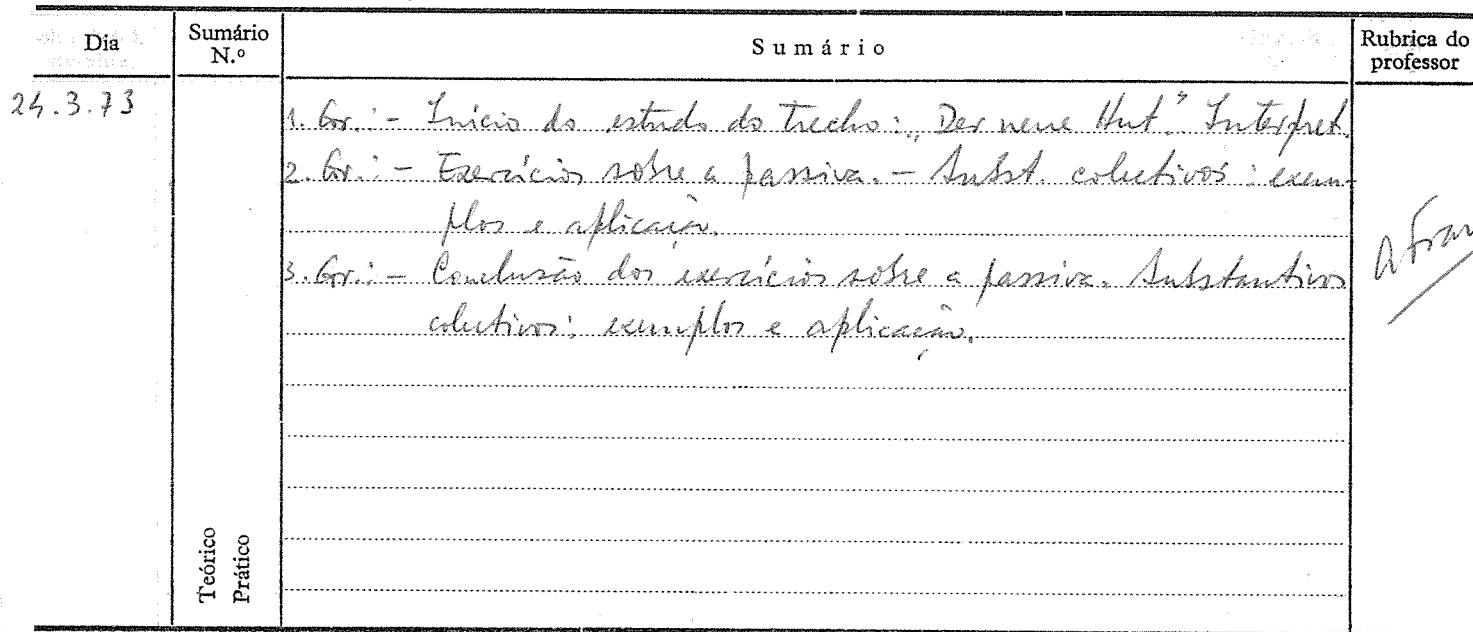 Dia Sumário N.º Sumário Rubrica do professor
24.3.73
1. Gr.: - Início do estudo do trecho: „Der neue Hut.” Interpret.
2. Gr.: - Exercícios sobre a passiva. - Subst. coletivos: exem-
plos e aplicação.
3. Gr.: - Conclusão dos exercícios sobre a passiva. Substantivos
coletivos: exemplos e aplicação.
Teórico
Prático